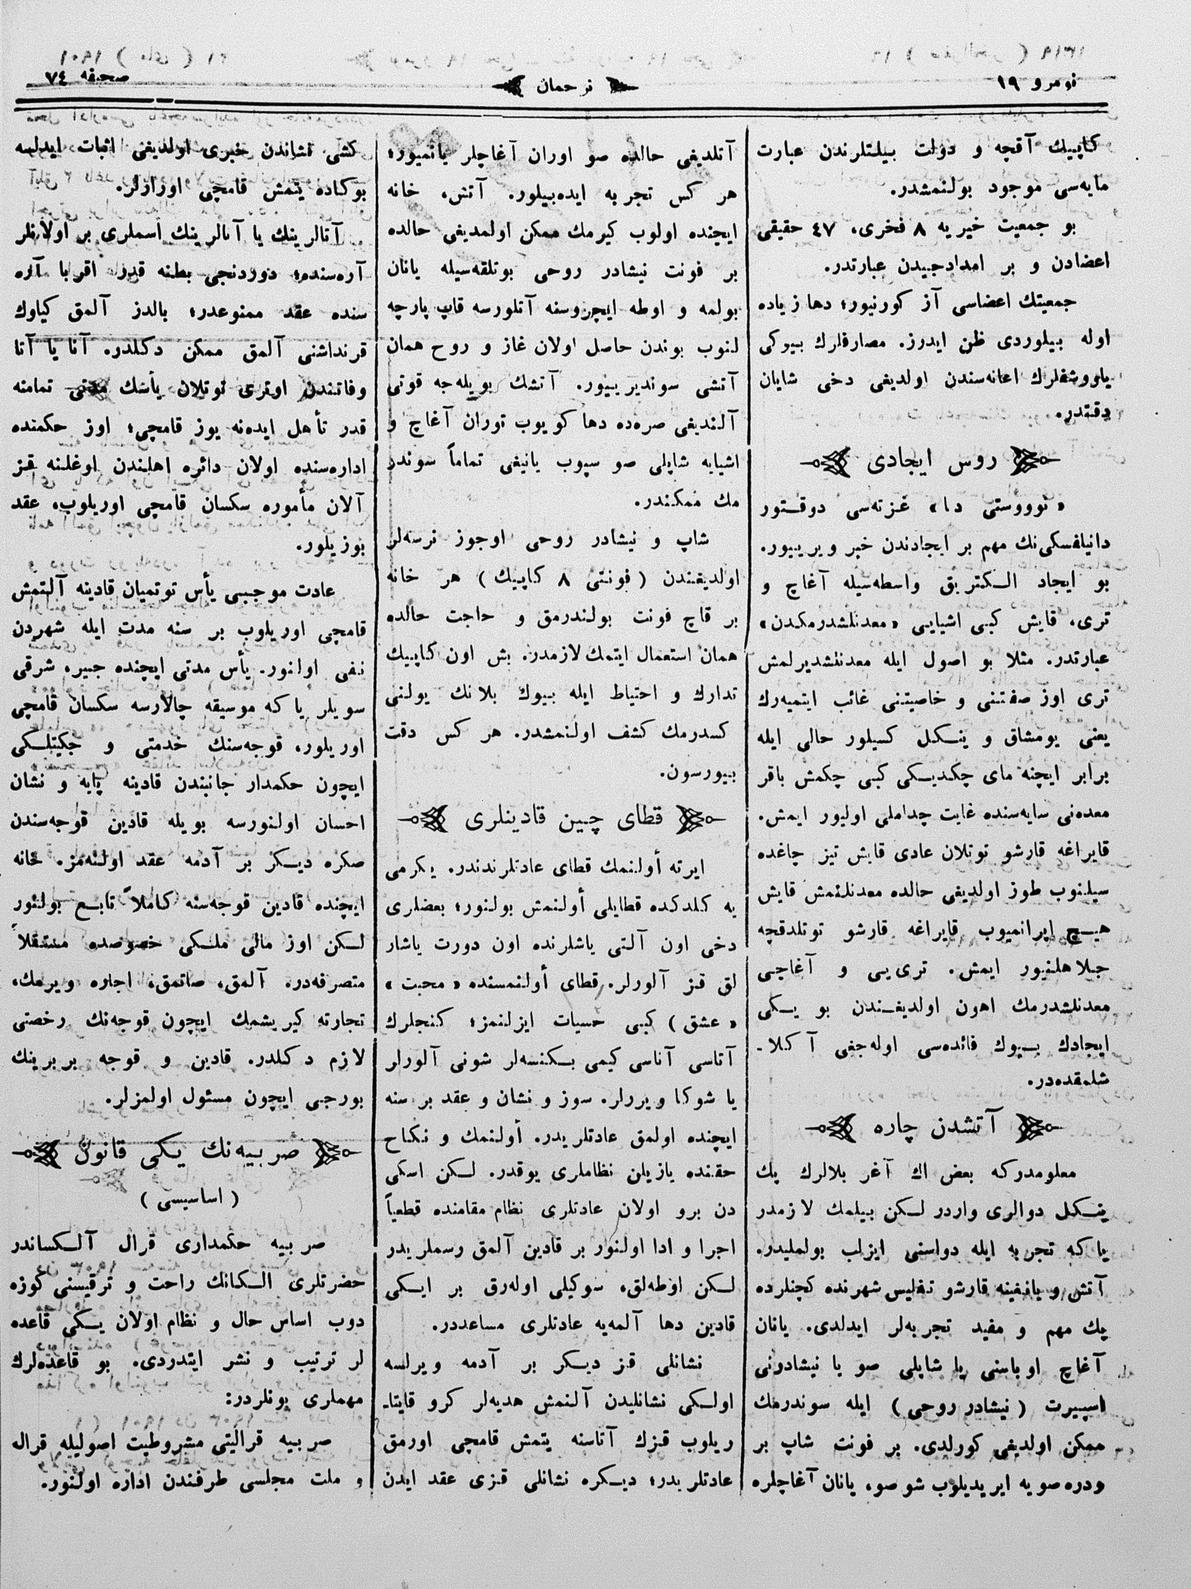 نومرو ١٩
ترجمان
صحيفه ٧٤
كاپيك آقچه و دولت بيلتلرندن عبارت
مايه‌سى موجود بولنمشدر.
بو جمعيت خيريه ٨ فخرى، ٤٧ حقيقى
اعضادن و بر امدادجيدن عبارتدر.
جمعيتك اعضاسى آز كورنيور؛ دها زياده
اوله بيلوردى ظن ايدرز. مصارفلرك بيوكى
ياووشقلرك اعانه‌سندن اولديغى دخى شايان
دقتدر.
روس ايجادى
«نووستى دا» غزته‌سى دوقتور
دانيلفسكى‌نك مهم بر ايجادندن خبر ويرييور.
بو ايجاد الكتريق واسطه‌سيله آغاچ و
ترى، قايش كبى اشيايى «معدنلشدرمكدن»
عبارتدر. مثلا بو اصول ايله معدنلشديرلمش
ترى اوز صفتنى و خاصيتنى غائب ايتميه‌رك
يعنى يومشاق و ينكل كسيلور حالى ايله
برابر ايچنه ماى چكديكى كبى چكمش باقر
معده‌نى سايه‌سنده غايت چداملى اوليور ايمش.
قايراغه قارشو توتلان عادى قايش تيز چاغده
سيلنوب طوز اولديغى حالده معدنلنمش قايش
هيچ اپرانميوب قايراغه قارشو توتلدقچه
جيلاهلنيور ايمش. ترى‌يى و آغاچى
معدنلشدرمك اهون اولديغندن بو يكى
ايجادك بيوك فائده‌سى اوله‌جغى آكلا-
شلمقده‌در.
آتشدن چاره
معلومدركه بعض اك آغر بلالرك پك
ينكل دوالرى واردر لكن بيلمك لازمدر
يا كه تجربه ايله دواسنى ايزلب بولمليدر.
آتش و يانغينه قارشو تفليس شهرنده كچنلرده
پك مهم و مفيد تجربه‌لر ايدلدى. يانان
آغاچ اوباسنى يا شاپلى صو يا نيشادونى
اسپيرت (نيشادر روحى) ايله سوندرمك
ممكن اولديغى كورلدى. بر فونت شاپ بر
ودره صويه ايريديلوب شو صو، يانان آغاچلره
آتلديغى حالده صو اوران آغاچلر يانميور؛
هر كس تجربه ايده‌بيلور. آتش، خانه
ايچنده اولوب كيرمك ممكن اولمديغى حالده
بر فونت نيشادر روحى بوتلقه‌سيله يانان
بولمه و اوطه ايچروسنه آتلورسه قاپ پارچه
لنوب بوندن حاصل اولان غاز و روح همان
آتشى سونديرييور. آتشك بويله‌جه قوتى
آلنديغى صره‌ده دها كويوب توران آغاچ و
اشيايه شاپلى صو سپوب يانيغى تماماً سوندر
مك ممكندر.
شاپ و نيشادر روحى اوجوز نرسه‌لر
اولديغندن (فونتى ٨ كاپيك) هر خانه
بر قاچ فونت بولندرمق و حاجت حالده
همان استعمال ايتمك لازمدر. بش اون كاپيك
تدارك و احتياط ايله بيوك بلانك يولنى
كسدرمك كشف اولنمشدر. هر كس دقت
بيورسون.
قطاى چين قادينلرى
ايرته أولنمك قطاى عادتلرندندر. يكرمى
يه كلدكده قطايلى أولنمش بولنور؛ بعضلرى
دخى اون آلتى ياشلرنده اون دورت ياشار
لق قز آلورلر. قطاى أولنمسنده «محبت»
«عشق) كبى حسيات ايزلنمز؛ كنجلرك
آتاسى آناسى كيمى بكنسه‌لر شونى آلورلر
يا شوكا ويررلر. سوز و نشان و عقد بر سنه
ايچنده اولمق عادتلريدر. أولنمك و نكاح
حقنده يازيلن نظاملرى يوقدر. لكن اسكى
دن برو اولان عادتلرى نظام مقامنده قطعياً
اجرا و ادا اولنور بر قادين آلمق رسملريدر
لكن اوطه‌لق، سوكيلى اوله‌رق بر ايكى
قادين دها آلمه‌يه عادتلرى مساعددر.
نشانلى قز ديكر بر آدمه ويرلسه
اولكى نشانليدن آلنمش هديه‌لر كرو قايتا-
ريلوب قيزك آتاسنه يتمش قامچى اورمق
عادتلريدر؛ ديكره نشانلى قزى عقد ايدن
كشى نشاندن خبرى اولديغى اثبات ايدلسه
بوكاده يتمش قامچى اورارلر.
آتالرينك يا آنالرينك اسملرى بر اولانلر
آره‌سنده؛ دوردنجى بطنه قدر اقربا آره
سنده عقد ممنوعدر؛ بالدز آلمق كياوك
قرنداشنى آلمق ممكن دكلدر. آنا يا آتا
وفاتندن اوترى توتلان يأسك مدتى تمامنه
قدر تأهل ايدنه يوز قامچى؛ اوز حكمنده
اداره‌سنده اولان دائره اهلندن اوغلنه قز
آلان مأموره سكسان قامچى اوريلوب، عقد
بوزيلور.
عادت موجبى يأس توتميان قادينه آلتمش
قامچى اوريلوب بر سنه مدت ايله شهردن
نفى اولنور. يأس مدتى ايچنده جبير، شرقى
سويلر يا كه موسيقه چالارسه سكسان قامچى
اوريلور، قوجه‌سنك خدمتى و جكيتلكى
ايچون حكمدار جانبندن قادينه پايه و نشان
احسان اولنورسه بويله قادين قوجه‌سندن
صكره ديكر بر آدمه عقد اولنه‌مز. خانه
ايچنده قادين قوجه‌سنه كاملاً تابع بولنور
لكن اوز مالى ملكى خصوصده مستقلاً
متصرفه‌در. آلمق، صاتمق، اجاره ويرمك،
تجارته كيريشمك ايچون قوجه‌نك رخصتى
لازم دكلدر. قادين و قوجه بربرينك
بورجى ايچون مسئول اولمزلر.
صربيه‌نك يكى قانون
(اساسيسى)
صربيه حكمدارى قرال آلكساندر
حضرتلرى الكانك راحت و ترقيسنى كوزه
دوب اساس حال و نظام اولان يكى قاعده
لر ترتيب و نشر ايتدردى. بو قاعده‌لرك
مهملرى بونلردر:
صربيه قراليتى مشروطيت اصوليله قراله
و ملت مجلسى طرفندن اداره اولنور.